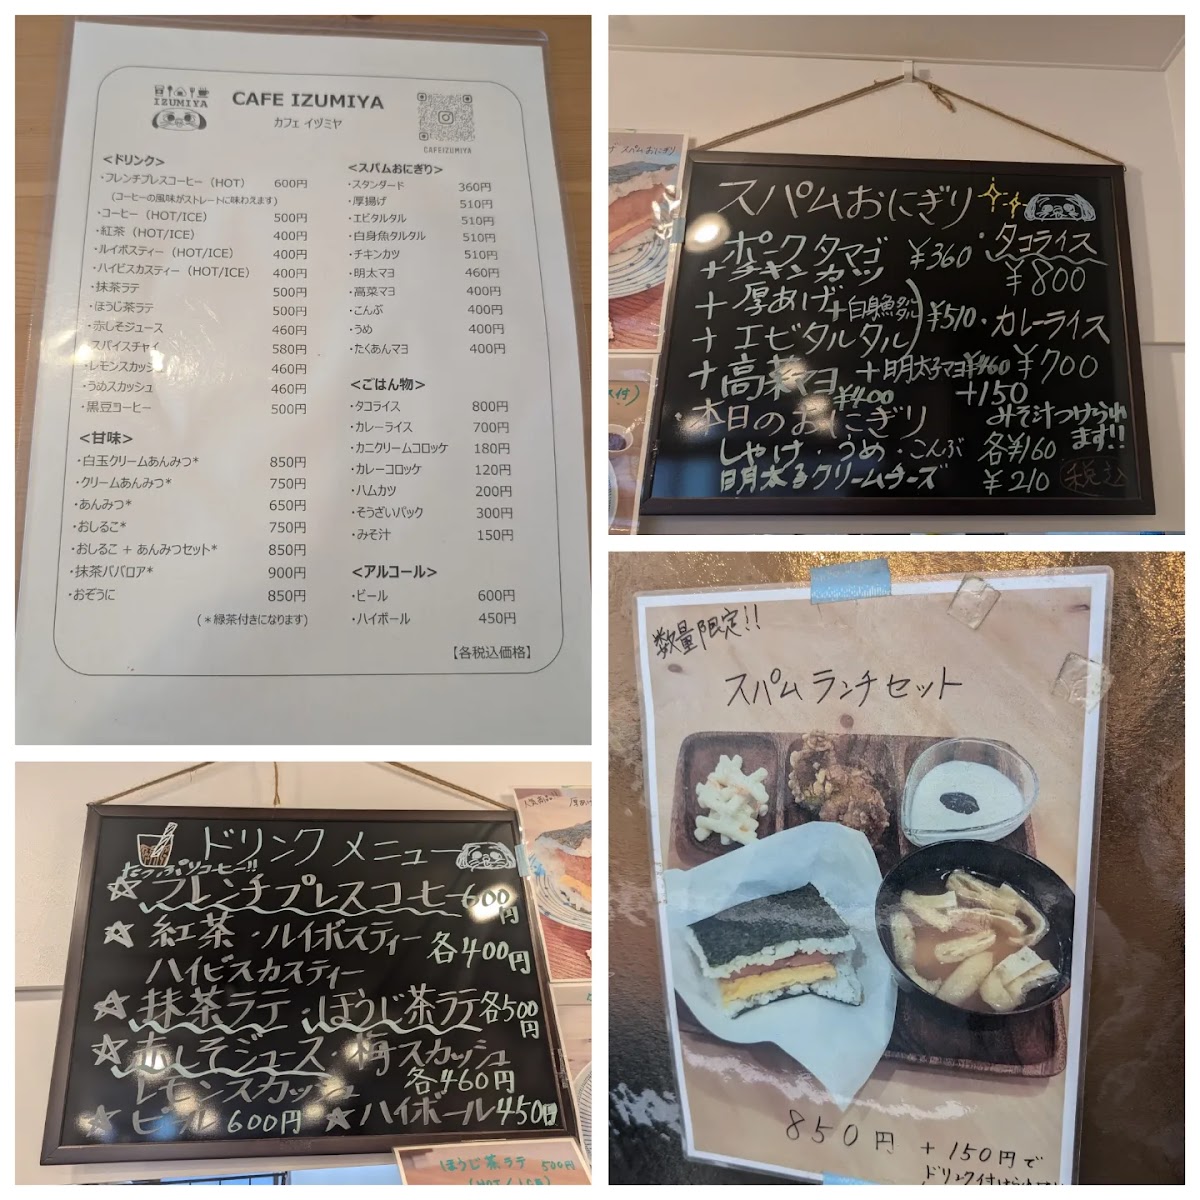 IZUMIYA
CAFE IZUMIYA
カフェ イヅミヤ
CAFEIZUMIYA
<ドリンク>
・フレンチプレスコーヒー（HOT） 600円
(コーヒーの風味がストレートに味わえます)
・コーヒー（HOT/ICE） 500円
・紅茶（HOT/ICE） 400円
・ルイボスティー（HOT/ICE） 400円
・ハイビスカスティー（HOT/ICE） 400円
・抹茶ラテ 500円
・ほうじ茶ラテ 500円
・赤しそジュース 460円
・スパイスチャイ 580円
・レモンスカッシュ 460円
・うめスカッシュ 460円
・黒豆ヨーヒー 500円
<甘味>
・白玉クリームあんみつ* 850円
・クリームあんみつ* 750円
・あんみつ* 650円
・おしるこ* 750円
・おしるこ + あんみつセット* 850円
・抹茶ババロア* 900円
・おぞうに 850円
(＊緑茶付きになります)
<スパムおにぎり>
・スタンダード 360円
・厚揚げ 510円
・エビタルタル 510円
・白身魚タルタル 510円
・チキンカツ 510円
・明太マヨ 460円
・高菜マヨ 400円
・こんぶ 400円
・うめ 400円
・たくあんマヨ 400円
<ごはん物>
・タコライス 800円
・カレーライス 700円
・カニクリームコロッケ 180円
・カレーコロッケ 120円
・ハムカツ 200円
・そうざいパック 300円
・みそ汁 150円
<アルコール>
・ビール 600円
・ハイボール 450円
【各税込価格】
スパムおにぎり
スパムおにぎり
ポークタマゴ ¥360
+チキンカツ
+厚あげ +白身魚タルタル
+エビタルタル ¥510
+高菜マヨ ¥400 +明太子マヨ¥460
・本日のおにぎり
しゃけ・うめ・こんぶ 各¥160
明太子クリームチーズ ¥210 税込
・タコライス
¥800
・カレーライス
¥700
+150
みそ汁つけられ
ます!!
ドリンクメニュー
たっぷりコーヒー!!
☆フレンチプレスコーヒー600円
☆紅茶・ルイボスティー 各400円
ハイビスカスティー
☆抹茶ラテ・ほうじ茶ラテ各500円
☆赤しそジュース・梅スカッシュ
レモンスカッシュ 各460円
☆ビール 600円 ☆ハイボール450円
ほうじ茶ラテ 500円
数量限定!!
スパムランチセット
850円 +150円で
ドリンク付けられ